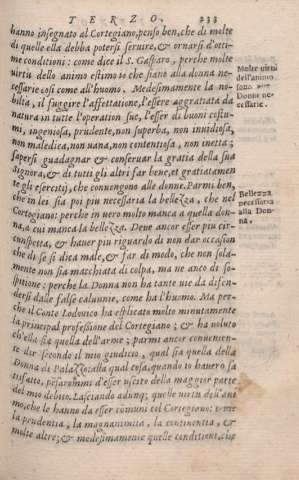 TERZO. 233
hanno insegnato al Cortegiano, penso ben, che di molte
di quelle ella debba potersi seruire, & ornarsi d'otti-
me conditioni: come dice il S. Gasparo, perche molte
uirtù dello animo estimo io che siano alla donna ne-
cessarie così come all'huomo. Medesimamente la no-
biltà, il fuggire l'affettatione, l'essere aggratiata da
natura in tutte l'operation sue, l'esser di buoni costu-
mi, ingeniosa, prudente, non superba, non inuidiosa,
non maledica, non uana, non contentiosa, non inetta;
sapersi guadagnar & conseruar la gratia della sua
signora, & di tutti gli altri far bene, et gratiatamen
te gli esercitij, che conuengono alle donne. Parmi ben,
che in lei sia poi piu necessaria la bellezza, che nel
Cortegiano: perche in uero molto manca a quella don-
na, a cui manca la bellezza. Deue ancor esser piu cir-
cunspetta, & hauer piu riguardo di non dar occasion
che di se si dica male, & far di modo, che non sola-
mente non sia macchiata di colpa, ma ne anco di so-
spitione: perche la Donna non ha tante uie da difen-
dersi dalle false calunnie, come ha l'huomo. Ma per-
che il Conte Lodouico ha esplicato molto minutamente
la principal professione del Cortegiano; & ha uoluto
ch'ella sia quella dell'arme; parmi ancor conuenien-
te dir secondo il mio giudicio, qual sia quella della
Donna di Palazzo: alla qual cosa, quando io hauero sa
tisfatto, pensarommi d'esser uscito della maggior parte
del mio debito. Lasciando adunq; quelle uirtù dell'ani
mo, che le hanno da esser cōmuni col Cortegiano: come
la prudentia, la magnanimità, la continentia, &
molte altre; & medesimamente quelle conditioni, che
Molte uirtù
dell'animo
sono
Donna ne-
cessarie.
Bellezza
necessaria
alla Don-
na.